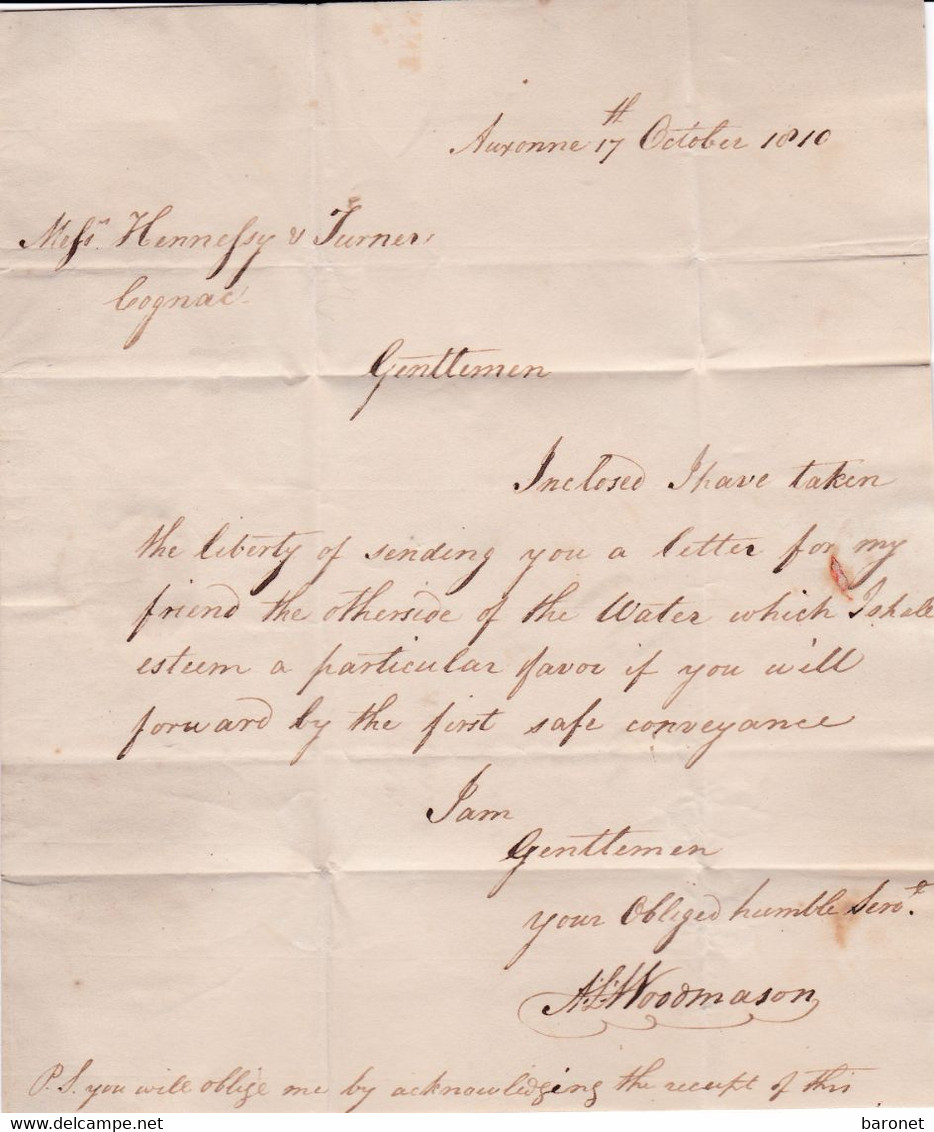 Auxonne 17th October 1810
Messrs. Hennessy & Turner
Cognac
Gentlemen
Inclosed I have taken
the liberty of sending you a letter for my
friend the otherside of the Water which I shall
esteem a particular favor if you will
forward by the first safe conveyance
I am
Gentlemen
your Obliged humble Servt.
A. L. Woodmason
P.S. you will oblige me by acknowledging the receipt of this
www.delcampe.net
baronet